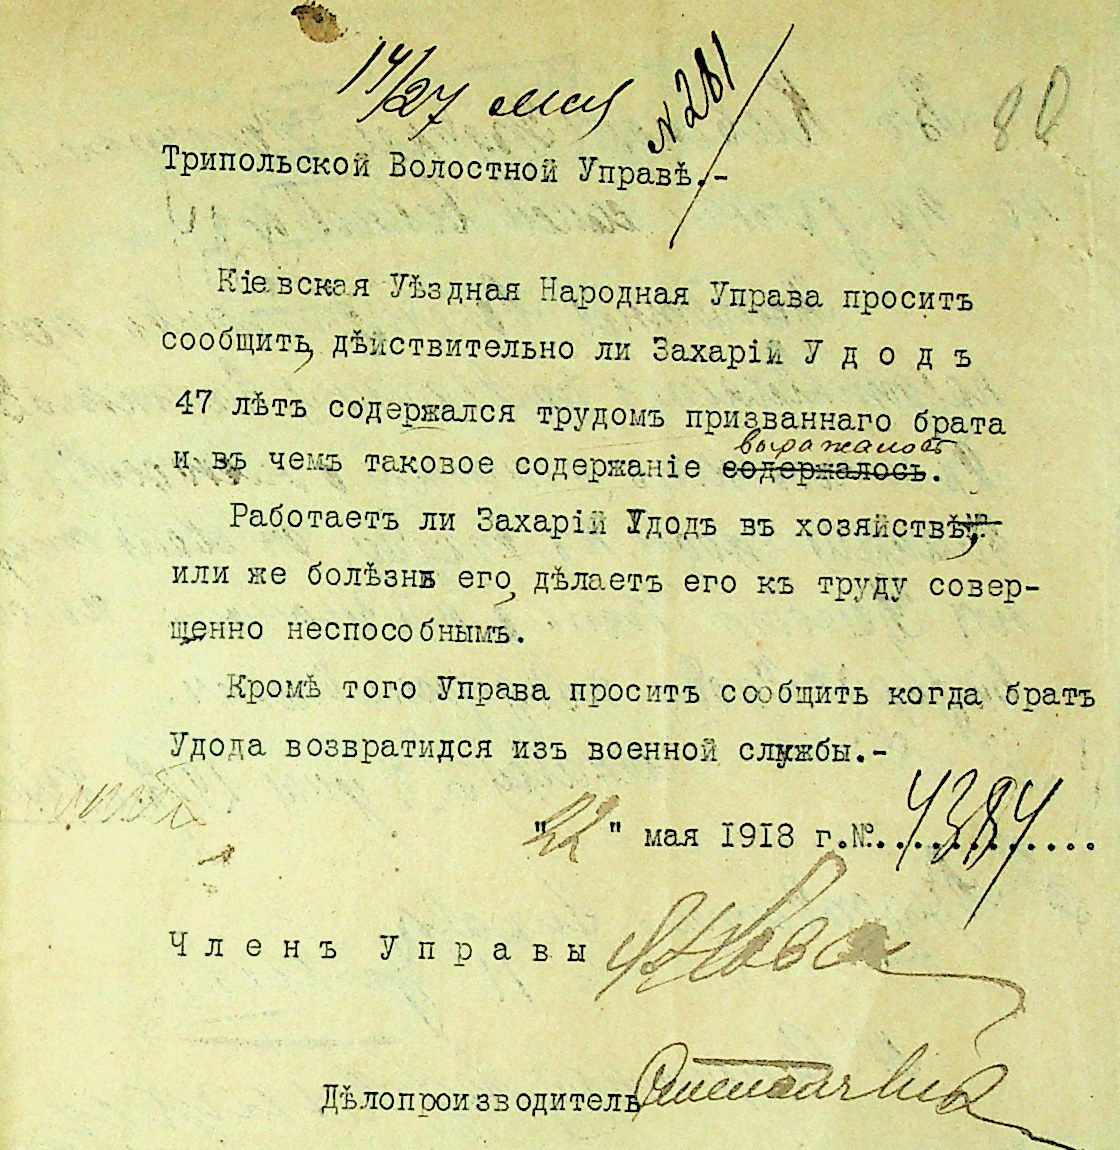 14/27 мая
№ 281
Трипольской Волостной Управѣ.-
Кіевская Уѣздная Народная Управа проситъ
сообщить, дѣйствительно ли Захарій Удодъ
47 лѣтъ содержался трудомъ призваннаго брата
выражалось
и въ чемъ таковое содержаніе содержалось.
Работаетъ ли Захарій Удодъ въ хозяйствѣ,
или же болѣзнь его, дѣлаетъ его къ труду совер-
щенно неспособнымъ.
Кромѣ того Управа проситъ сообщить когда братъ
Удода возвратидся изъ военной службы.-
"22" мая 1918 г.№.4384............
Членъ Управы
Дѣлопроизводитель